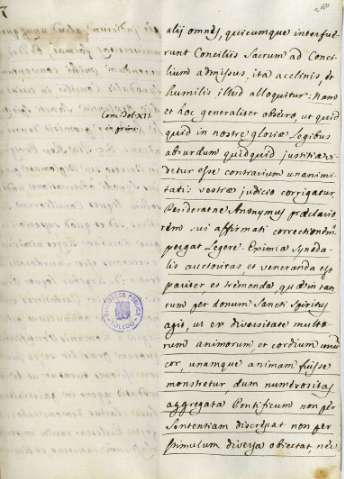 alij omnes, quicumque interfue
runt Conciliis Sacrum ad Conci
lium admissus, ita acclinis, &
humilis illud alloquitur: Nam
et hoc generaliter obsecro, ut quid
quid in nostræ gloriæ legibus
absurdum quidquid justitiæ vi
detur esse contrarium unanimi
tati: vestræ judicio corrigatur
Desideratne Anonymus præclario
rem sui affirmati correctionem,
pergat legere. Eximia Synoda
lis auctoritas et veneranda est
pariter et tremenda, quæ in tan
tum per donum Sancti Spiritus
agit, ut ex diversitate multo
rum animorum et cordium unum
cor, unamque animam fuisse
monstretur dum numerositas
aggregata Pontificum non per
Sententiam discrepat non per
stimulum diversa obiectat, nec
Conc. Tol. XII
in princ.
BIBLIOTECA PUBLICA
TOLEDO